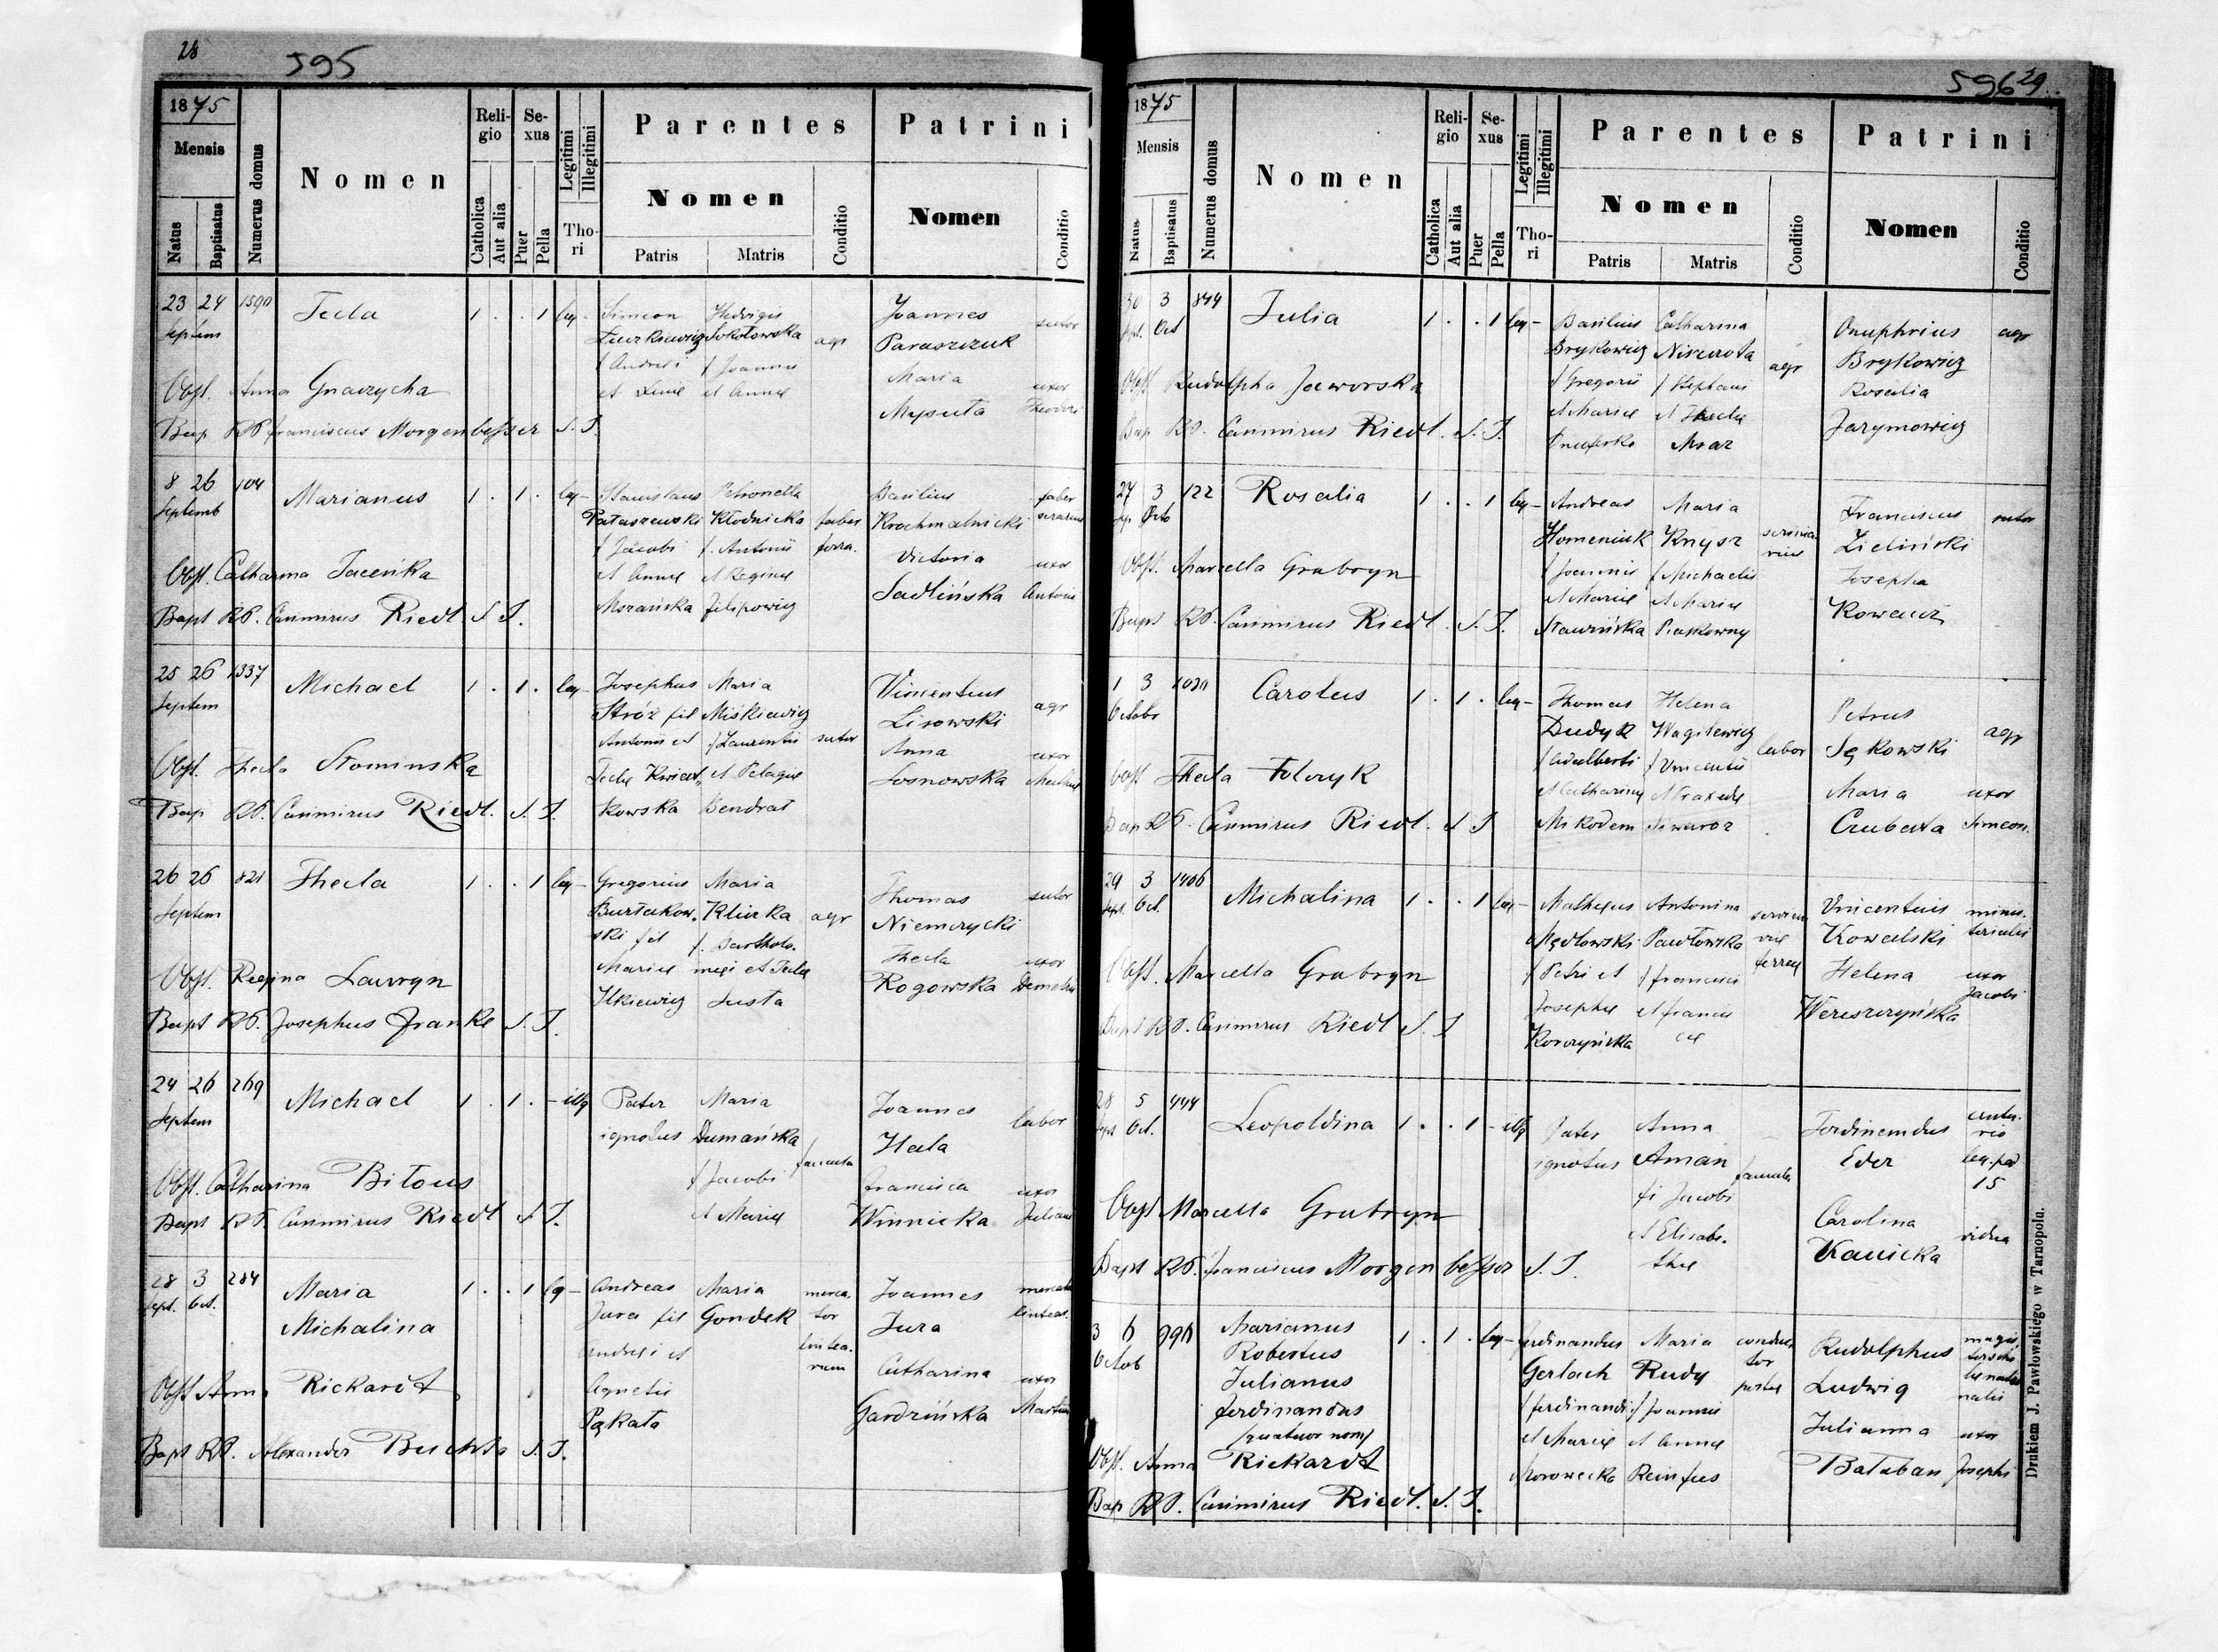 28
595
1875
Mensis
Natus
Baptisatus
Numerus domus
Nomen
Religio
Catholica
Aut alia
Sexus
Puer
Pella
Legitimi
Illegitimi
Thori
Parentes
Nomen
Patris
Matris
Conditio
Patrini
Nomen
Conditio
23 24 1590 Tecla 1 . . 1 leg - Simeon Hedvigis Joannes sutor
Septem Sokołowska agr Paraszczuk
f Andrei f Joannis Maria uxor
et et Annae Theodori
Obst. Anna Gnarycha
Bap RP Franciscus Morgenbesser S. J.
8 26 104 Marianus 1 . 1 . leg - Stanislaus Petronella Basilius faber
Septemb Pataszewski Kłodnicka faber Krochmalnicki
f Jacobi f. Antonii ferra. Victoria uxor
et Annae et Reginae Sadlińska Antonii
Morańska Filipowicz
Obst. Catharina
Bapt RP. Casimirus Riedl S J.
25 26 1337 Michael 1 . 1 . leg - Josephus Maria Vincentius
Septem Stróż fil Miśkiewicz Lisowski agr
Antonii et f Laurentii sutor Anna uxor
Teclae Kwiat et Pelagiae Sosnowska
kowska Bendrat
Obst. Thecla Stominska
Bap RP. Casimirus Riedl. S. J.
26 26 821 Thecla 1 . . 1 leg - Gregorius Maria Thomas sutor
Septem Burtakow. Klucka agr Niemczycki
ski fil f. Bartholo. Thecla uxor
Mariae maei et Teclae Rogowska Demetrii
Ilkiewicz Susta
Obst. Regina Lawryn
Bapt RP. Josephus Franke S. J.
24 26 269 Michael 1 . 1 . - illg Pater Maria Joannes labor
Septem ignotus Dumańska Hala
f Jacobi famula Francisca uxor
et Mariae Winnicka Juliani
Obst. Catharina Bitous
Bapt RP Casimirus Riedl S. J.
28 3 284 Maria 1 . . 1 lg - Andreas Maria merca. Joannes
Sept. Oct. Michalina Jura fil Gondek tor Jura
Andrei et lintea. Catharina uxor
Agnetis rum Gardzińska
Pąkata
Obst Anna Rickardt
Bapt RP. Alexander S. J.
596 29
1875
Mensis
Natus
Baptisatus
Numerus domus
Nomen
Religio
Catholica
Aut alia
Sexus
Puer
Pella
Legitimi
Illegitimi
Thori
Parentes
Nomen
Patris
Matris
Conditio
Patrini
Nomen
Conditio
30 3 844 Julia 1 . . 1 leg - Basilius Catharina Onuphrius agr
Sept. Oct Brykowicz agr Brykowicz
f Gregorii f Stephani Rosalia
et Mariae et Theclae Jarymowicz
Mraz
Obst Rudolpha Jaworska
Bap RP. Casimirus Riedl. S. J.
27 3 122 Rosalia 1 . . 1 leg - Andreas Maria Franciscus sutor
Sep Octo Homeniuk Knysz Zieliński
f Joannis f Michaelis Josepha
et Mariae et Mariae Kowacz
Stawińska
Obst. Marcella Grabryn
Bapt RP. Casimirus Riedl. S. J.
1 3 Carolus 1 . 1 . leg - Thomas Helena Petrus
Octobr Dudyk Wagilewicz labor Sękowski agr
f Adalberti f Vincentii Maria uxor
et Catharinae et Praxedae Czubata Simeon.
Mikodem
Obst Thecla
Bap RP. Casimirus Riedl. S J
29 3 1406 Michalina 1 . . 1 leg - Matheus Antonina Vincentius minis.
Sept. Oct. Mędłowski Pawłowska Kowalski terialis
f Petri et f Francisci ferreae Helena uxor
Josephae et Francis Wereszczyńska Jacobi
Korczyńska cae
Obst. Marcella Grabryn
Bapt RP. Casimirus Riedl S. J
28 5 444 Leopoldina 1 . . 1 - illg Pater Anna Ferdinandus
Sept Oct. ignotus Aman famula Eder
fi Jacobi 15
et Elisabe. Carolina vidua
thae Kanicka
Obst Marcella Grabryn
Bapt RP. Franciscus Morgenbesser S. J.
3 6 996 Marianus 1 . 1 . leg - Ferdinandus Maria conduc Rudolphus
Octob Robertus Gerlach Rudy tor Ludwig
Julianus f Ferdinandi f Joannis postae Julianna uxor
Ferdinandus et Mariae et Annae Bataban Josephi
/quatuor nom/ Morowecka Reinfus
Obst. Anna Rickardt
Bap RP. Casimirus Riedl. S. J.
Drukiem J. Pawłowskiego w Tarnopolu.